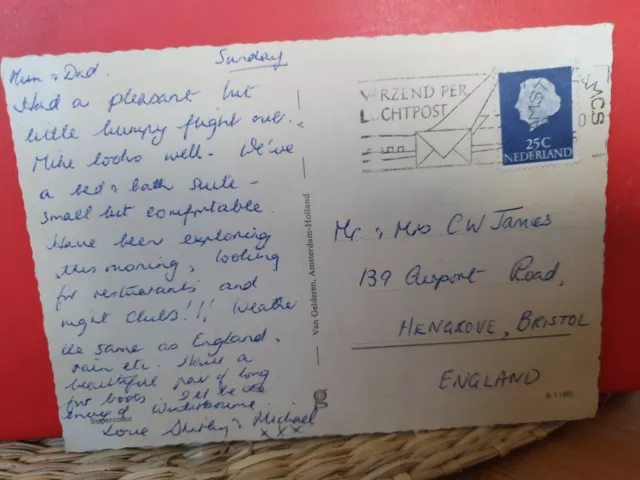 Sunday
Mum & Dad.
Had a pleasant but
little bumpy flight over.
Mike looks well. We've
a bed & bath suite -
small but comfortable.
Have been exploring
this morning, looking
for restaurants and
night clubs!!! Weather
the same as England,
rain etc. Have a
beautiful pair of long
for boots I'll be the
envy of Winterbourne.
Love Shirley & Michael
x x x
Supercolor
Van Gelderen, Amsterdam-Holland
VERZEND PER
LUCHTPOST
AMST
MCS
25C
NEDERLAND
Mr & Mrs C W James
139 Airport Road,
HENGROVE, BRISTOL
ENGLAND